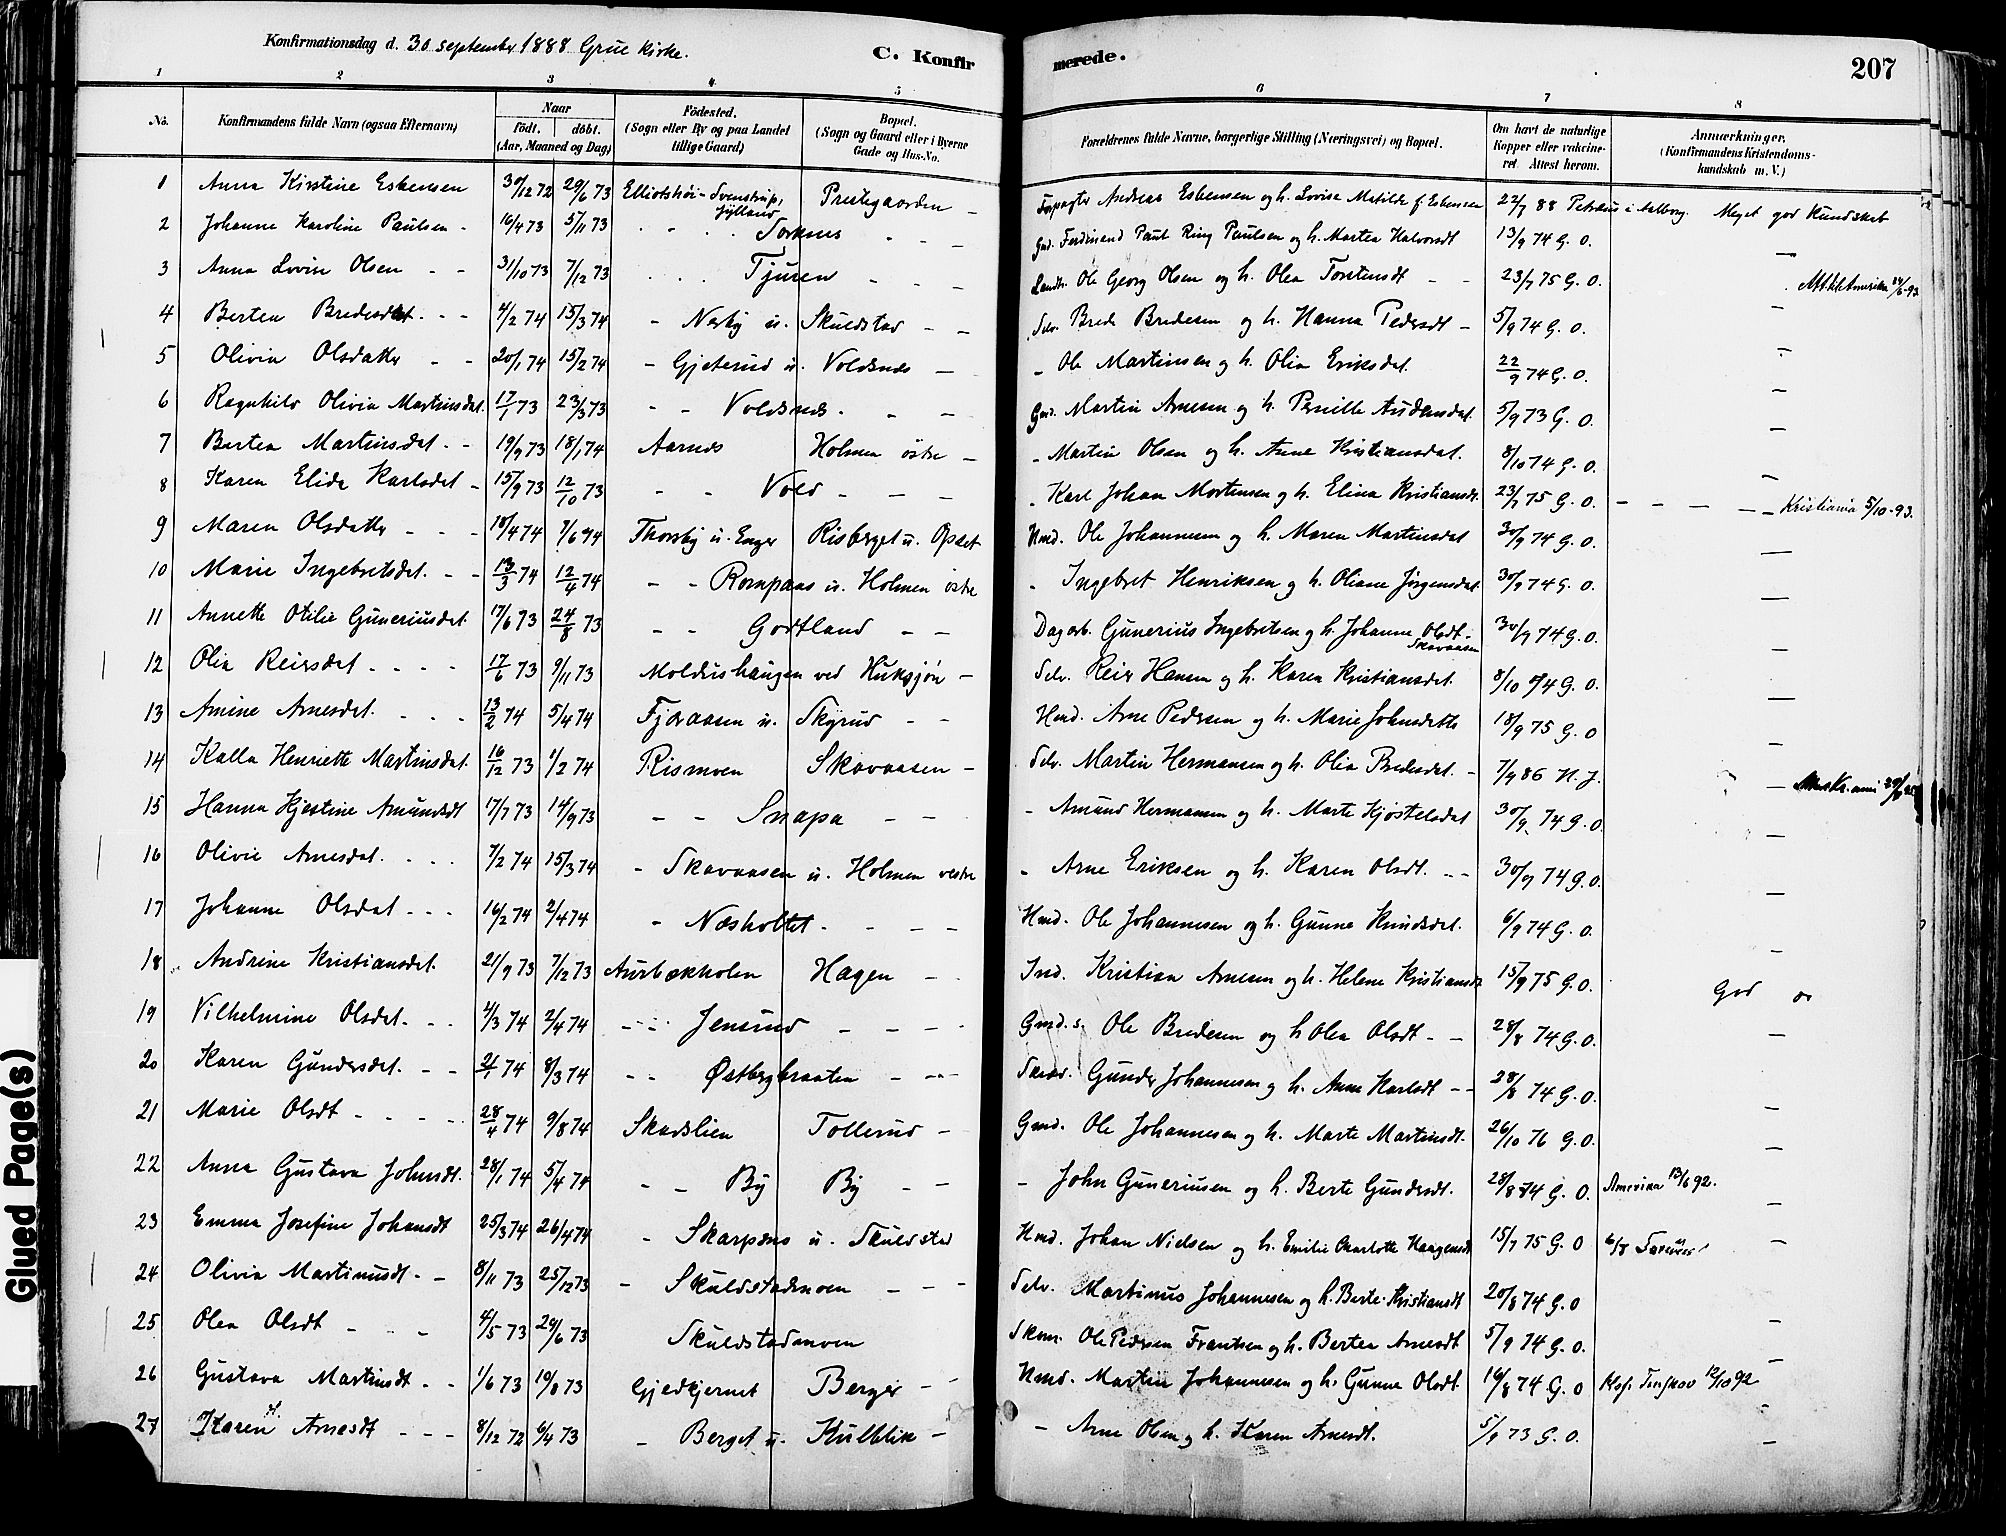 Konfirmationsdag d. 30 september 1888 Grue kirke.
C. Konfirmerede.
207
1 2 3 4 5 6 7 8
No.
Konfirmandens fulde Navn (ogsaa Efternavn)
Naar
födt. döbt.
(Aar, Maaned og Dag)
Födested.
(Sogn eller By og paa Landet
tillige Gaard)
Bopæl.
(Sogn og Gaard eller i Byerne
Gade og Hus-No.
Forældrenes fulde Navne, borgerlige Stilling (Næringsvei) og Bopæl.
Om havt de naturlige
Kopper eller vakcine-
ret. Attest herom.
Anmærkninger,
(Konfirmandens Kristendoms-
kundskab m. V.)
1 Anna Kirstine Esbensen 30/12 72 29/6 73 Svenstrup, Jylland Prestegaarden - Andreas Esbensen og h. Lovise Matilde f. Esbensen 22/7 88 i Aalborg. Meget god Kundskab
2 Johanne Karoline Paulsen - 16/4 73 5/11 73 Torknes - - - Gmd. Ferdinand Paul Ring Paulsen og h. Martea Halvorsdt 13/9 74 G. O. —
3 Anna Lovise Olsen - - 31/10 73 7/12 73 Tjuren - - - Ole Georg Olsen og h. Olea Torstensdt - - 23/7 75 G. O. Amerika 93
4 Bertea Bredesdat. - - 4/2 74 15/3 74 - Nerby u. Skulstad - - Selv. Brede Bredesen og h. Hanna Pedersdt - 5/9 74 G. O. —
5 Olivia Olsdatter - - 20/1 74 15/2 74 - Gjeterud u. Voldsnes - - Ole Martinsen og h. Olia Eriksdat. 22/9 74 G. O. —
6 Ragnhild Olivia Martinsdat. 17/1 73 23/3 73 - - Voldsnes. - - Gmd. Martin Arnesen og h. Pernille Audensdat. 5/9 73 G. O. —
7 Bertea Martinsdat. - - 19/9 73 18/1 74 Aarnes Holmen östre - - Martin Olsen og h. Anne Kristiansdat. 8/10 74 G. O. —
8 Karen Elida Karlsdat - 15/9 73 12/10 73 - - Vold - - - - Karl Johan Mortensen og h. Elina Kristiansdt. 23/7 75 G. O. - - - - Kristiania 5/10-93.
9 Maren Olsdatter - - - 18/4 74 7/6 74 Thorsby u. Enger Risberget u. Opset Hmd. Ole Johannesen og h. Maren Martinsdat 30/9 74 G. O. —
10 Marie Ingebretsdat. - - 13/3 74 12/4 74 - - Rompaas u. Holmen östre - Ingebret Henriksen og h. Oliane Jørgensdat 30/9 74 G. O. —
11 Annette Otilie Guneriusdat. 17/6 73 24/8 73 - - Godtland - - Dagarb. Gunerius Ingebretsen og h. Johanne Olsdt. Skavaasen 30/9 74 G. O. —
12 Olia Reiersdat. - - - - 17/6 73 9/11 73 Moldushaugen ved Huksjøn - Selv. Reier Hansen og h. Karen Kristiansdat. 8/10 74 G. O. —
13 Amine Arnesdat. - - - 13/2 74 5/4 74 Fjøraasen u. Skyrud - - Hmd. Arne Pedersen og h. Marie Johnsdatter 18/9 75 G. O —
14 Kalla Henriette Martinsdat. 16/12 73 1/2 74 Rismoen Skavaasen - Selv. Martin Hermansen og h. Olia Bredesdat. - 7/9 86 N. J. —
15 Hanna Kjestine Amundsdt 17/7 73 14/9 73 - - Snapa - - - Amund Hermansen og h. Marte Kjøstelsdat 30/9 74 G. O. —
16 Olivie Arnesdat. - - - 7/2 74 15/3 74 - Skavaasen u. Holmen vestre - Arne Eriksen og h. Karen Olsdt. - - 30/9 74 G. O. —
17 Johanne Olsdat - - - 16/2 74 2/4 74 - Næsholtet. - - - Hmd. Ole Johannesen og h. Gunne Knudsdat. 6/9 74 G. O. —
18 Andrine Kristiansdat. 21/9 73 7/12 73 Aurbækholen Hagen - - Ind. Kristian Arnesen og h. Helene Kristiansdt 15/9 75 G. O. God
19 Vilhelmine Olsdat. - - 4/3 74 2/4 74 - - - Jensrud - - - - Gmd.s. Ole Bredesen og h. Olea Olsdt - - 28/8 74 G. O. —
20 Karen Gundersdat. - - 2/1 74 8/3 74 - - Østbergbraaten - - - Skræd. Gunder Johannesen og h. Anne Karlsdt - - 28/8 74 G. O. —
21 Marie Olsdt - - - - 28/4 74 9/8 74 Skarslien Tollerud - Gmd. Ole Johannesen og h. Marte Martinsdt. 26/10 76 G. O. —
22 Anna Gustava Johnsdt. 28/1 74 5/4 74 - - By By - - - John Guneriusen og h. Berte Gundersdt. 28/8 74 G. O. Amerika 13/6 92. —
23 Emma Josefine Johansdt 25/3 74 26/4 74 - Skarpnes u. Skulstad Hmd. Johan Nielsen og h. Emilie Charlotte Haagensdt 15/7 75 G. O —
24 Olivia Martinusdt. - - 8/11 73 25/12 73 - Skulstadmoen - - - Selv. Martinus Johannesen og h. Berte Kristiansdt 20/8 74 G. O
25 Olea Olsdt - - - 4/5 73 29/6 73 Skulstadmoen Skom. Ole Pedersen Frantsen og h. Bertea Arnesdt 5/9 74 G. O. —
26 Gustava Martinsdt - - 1/6 73 10/8 73 Gjedtjernet Berger - - Hmd. Martin Johannesen og h. Gunne Olsdt. 16/8 74 G. O 12/10 92 —
27 Karen Arnesdt - - - 8/12 72 6/4 73 - Berget u. Kulblik - - Arne Olsen og h. Karen Arnesdt. 5/9 73 G. O. —
Glued Page(s)